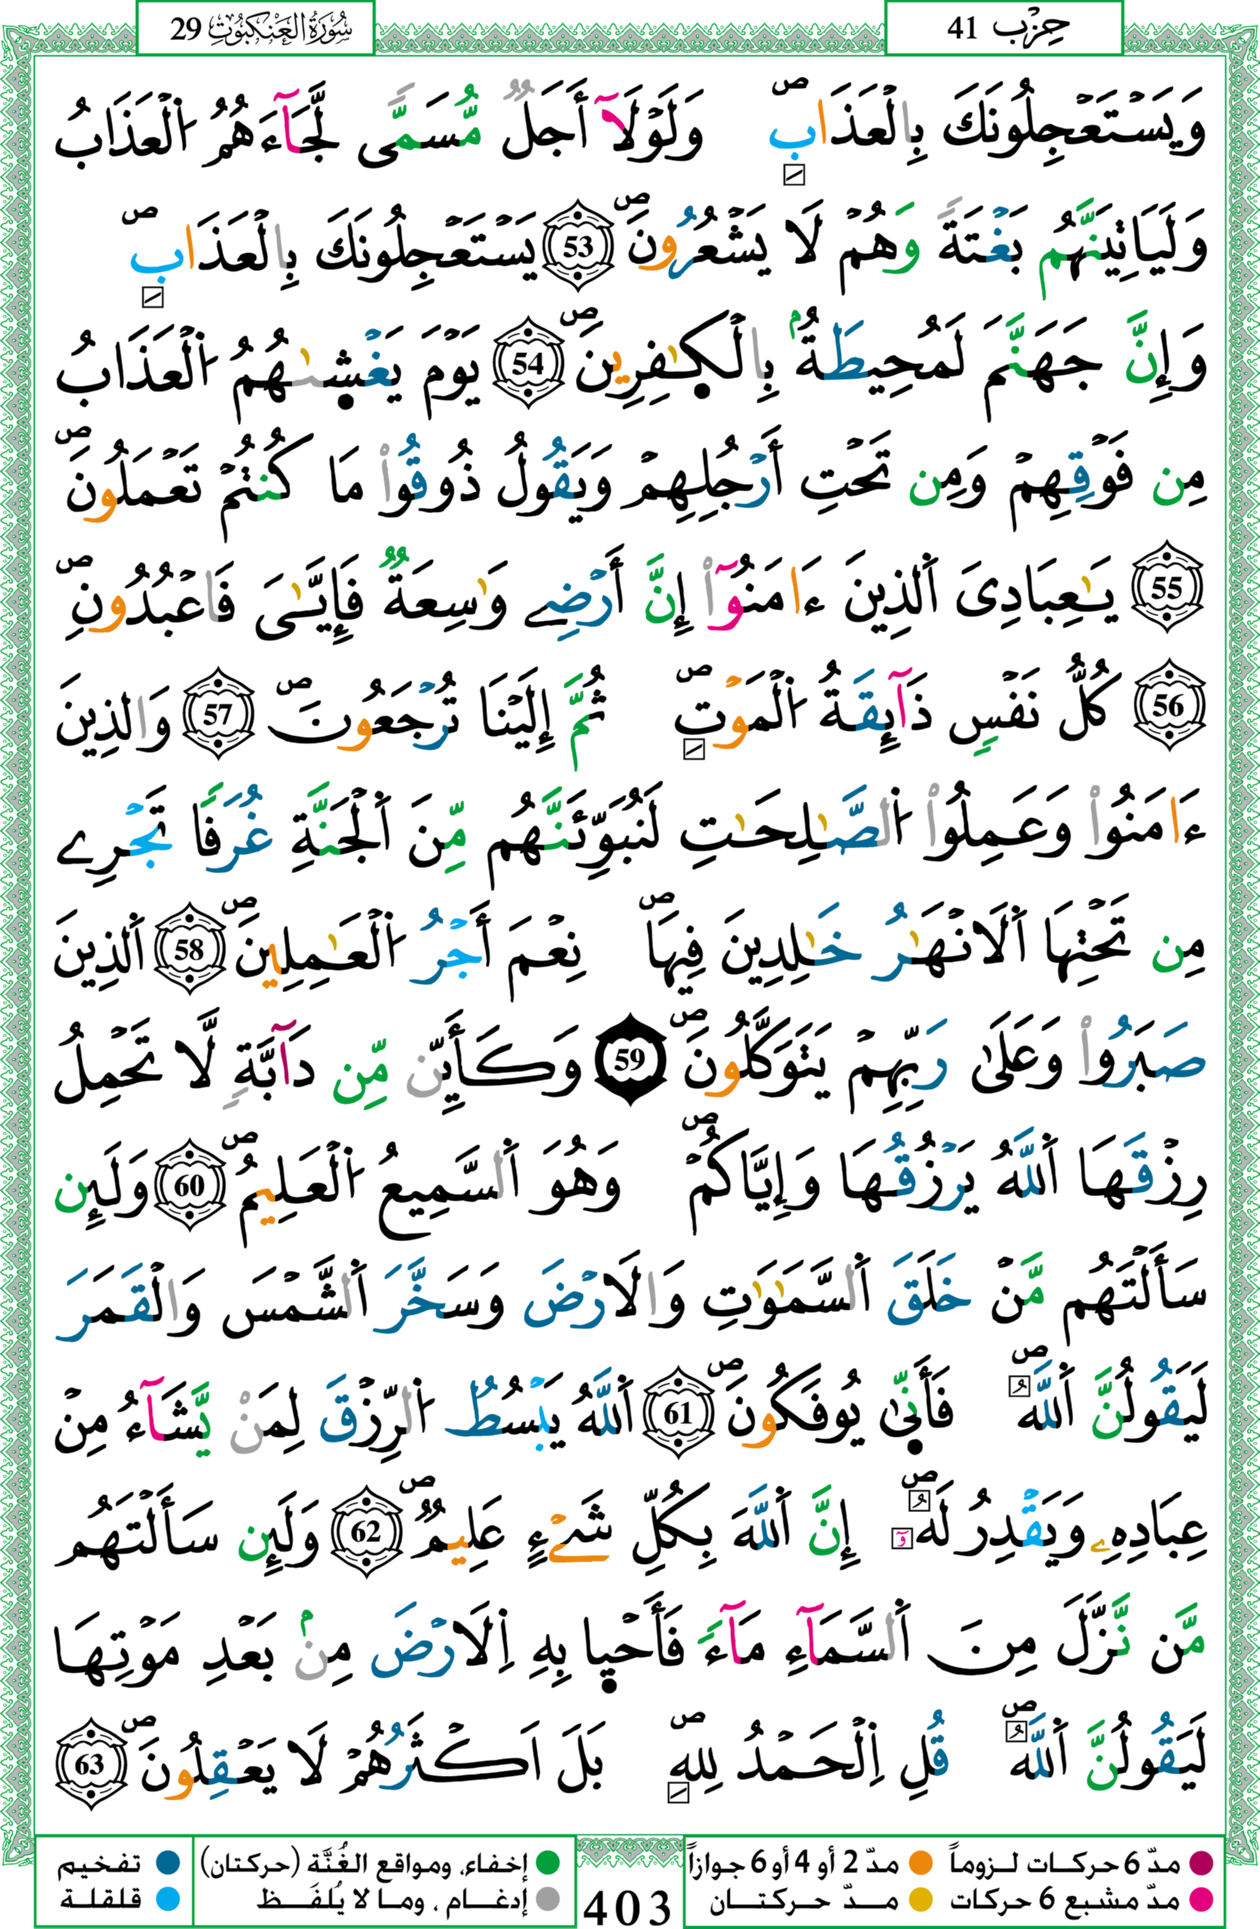 سُورَةُ الْعَنكَبُوتِ 29
حِزْب 41
وَيَسْتَعْجِلُونَكَ بِالْعَذَابِ ۖ وَلَوْلَآ أَجَلٌ مُّسَمًّى لَّجَآءَهُمُ اُ۬لْعَذَابُ
وَلَيَاتِيَنَّهُم بَغْتَةً وَهُمْ لَا يَشْعُرُونَ ۖ 53 يَسْتَعْجِلُونَكَ بِالْعَذَابِ ۖ
وَإِنَّ جَهَنَّمَ لَمُحِيطَةٌۢ بِالْكٰفِرِينَ ۖ 54 يَوْمَ يَغْشٰىهُمُ اُ۬لْعَذَابُ
مِن فَوْقِهِمْ وَمِن تَحْتِ أَرْجُلِهِمْ وَيَقُولُ ذُوقُواْ مَا كُنتُمْ تَعْمَلُونَ ۖ
55 يَٰعِبَادِىَ اَ۬لذِينَ ءَامَنُوٓاْ إِنَّ أَرْضِے وَٰسِعَةٌ فَإِيَّٰىَ فَاعْبُدُونِ ۖ
56 كُلُّ نَفْسٍ ذَآئِقَةُ اُ۬لْمَوْتِ ۖ ثُمَّ إِلَيْنَا تُرْجَعُونَ ۖ 57 وَالذِينَ
ءَامَنُواْ وَعَمِلُواْ اُ۬لصَّٰلِحَٰتِ لَنُبَوِّئَنَّهُم مِّنَ اَ۬لْجَنَّةِ غُرَفًا تَجْرِے
مِن تَحْتِهَا اَ۬لَانْهَٰرُ خَٰلِدِينَ فِيهَا ۖ نِعْمَ أَجْرُ اُ۬لْعَٰمِلِينَ ۖ 58 اَ۬لذِينَ
صَبَرُواْ وَعَلَىٰ رَبِّهِمْ يَتَوَكَّلُونَ ۖ 59 وَكَأَيِّن مِّن دَآبَّةٍ لَّا تَحْمِلُ
رِزْقَهَا اَ۬للَّهُ يَرْزُقُهَا وَإِيَّاكُمْ ۖ وَهُوَ اَ۬لسَّمِيعُ اُ۬لْعَلِيمُ ۖ 60 وَلَئِن
سَأَلْتَهُم مَّنْ خَلَقَ اَ۬لسَّمَٰوَٰتِ وَالَارْضَ وَسَخَّرَ اَ۬لشَّمْسَ وَالْقَمَرَ
لَيَقُولُنَّ اَ۬للَّهُ ۖ فَأَنّٰى يُوفَكُونَ ۖ 61 اَ۬للَّهُ يَبْسُطُ اُ۬لرِّزْقَ لِمَنْ يَّشَآءُ مِنْ
عِبَادِهِۦ وَيَقْدِرُ لَهُۥٓ ۖ إِنَّ اَ۬للَّهَ بِكُلِّ شَےْءٍ عَلِيمٌ ۖ 62 وَلَئِن سَأَلْتَهُم
مَّن نَّزَّلَ مِنَ اَ۬لسَّمَآءِ مَآءً فَأَحْيا بِهِ اِ۬لَارْضَ مِنۢ بَعْدِ مَوْتِهَا
لَيَقُولُنَّ اَ۬للَّهُ ۖ قُلِ اِ۬لْحَمْدُ لِلهِ ۖ بَلَ اَكْثَرُهُمْ لَا يَعْقِلُونَ ۖ 63
مدّ 6 حركات لـزوماً
مدّ 2 أو 4 أو 6 جوازاً
إخفاء، ومواقع الغُنَّة (حركتان)
تفخيم
مدّ مشبع 6 حركات
مــدّ حـركـتــان
إدغـام ، ومـا لا يُلفَـظ
قلقلة
403